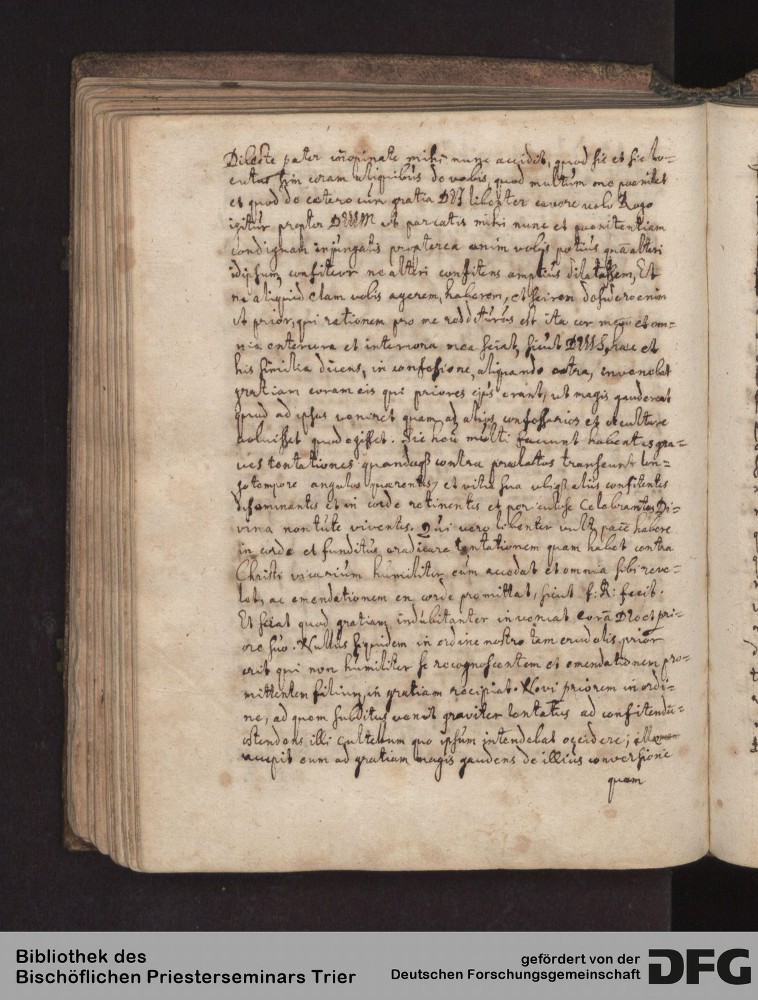 Dilecte pater inopinate mihi nunc accidit, quod sic et sic lo-
cutus sim coram aliquibus de vobis, quod multum me poenitet
et quod de caetero cum gratia DEI libenter cavere volo Rogo
igitur propter DEUM ut parcatis mihi nunc et poenitentiam
condignam injungatis propterea enim vobis potius quā alteri
idipsum confiteor ne alteri confitens amplius dilatassem, Et
ne aliquid clam vobis agerem, haberem, et scirem desidero enim
ut prior, qui rationem pro me redditurus est ita cor meum et om-
nia exteriora et interiora mea sciat, sicut DEUS, haec et
his similia dicens, in confessione, aliquando extra, invenebat
gratiam coram eis qui priores ejus erant, ut magis gauderent
quod ad ipsos veniret quam ad alios confessarios et occultare
voluisset quod egisset. Sic heu multi faciunt habentes gra-
ves tentationes quandoque contra praelatos transeunt lon-
go tempore angulos quaerentes, et vitia sua ubique aliis confitentes
disseminantes et in corde retinentes et periculose Celebrantes Di-
vina non tute viventes. Qui vero libenter vult pacē habere
in corde et funditus eradicare tentationem quam habet contra
Christi vicarium humiliter eum accedat et omnia sibi reve-
let, ac emendationem ex corde promittat, sicut f: R: fecit.
Et sciat quod gratiam indubitanter inveniat corā DEo et pri-
ore suo. Nullus siquidem in ordine nostro tam crudelis prior
erit qui non humiliter se recognoscentem et emendationem pro-
mittentem filium in gratiam recipiat. Novi priorem in ordi-
ne, ad quem subditus venit graviter tentatus ad confitendū-
ostendens illi cultellum quo ipsum intendebat occidere;
accepit eum ad gratiam magis gaudens de illius conversione
quam
Bibliothek des
Bischöflichen Priesterseminars Trier
gefördert von der
Deutschen Forschungsgemeinschaft
DFG